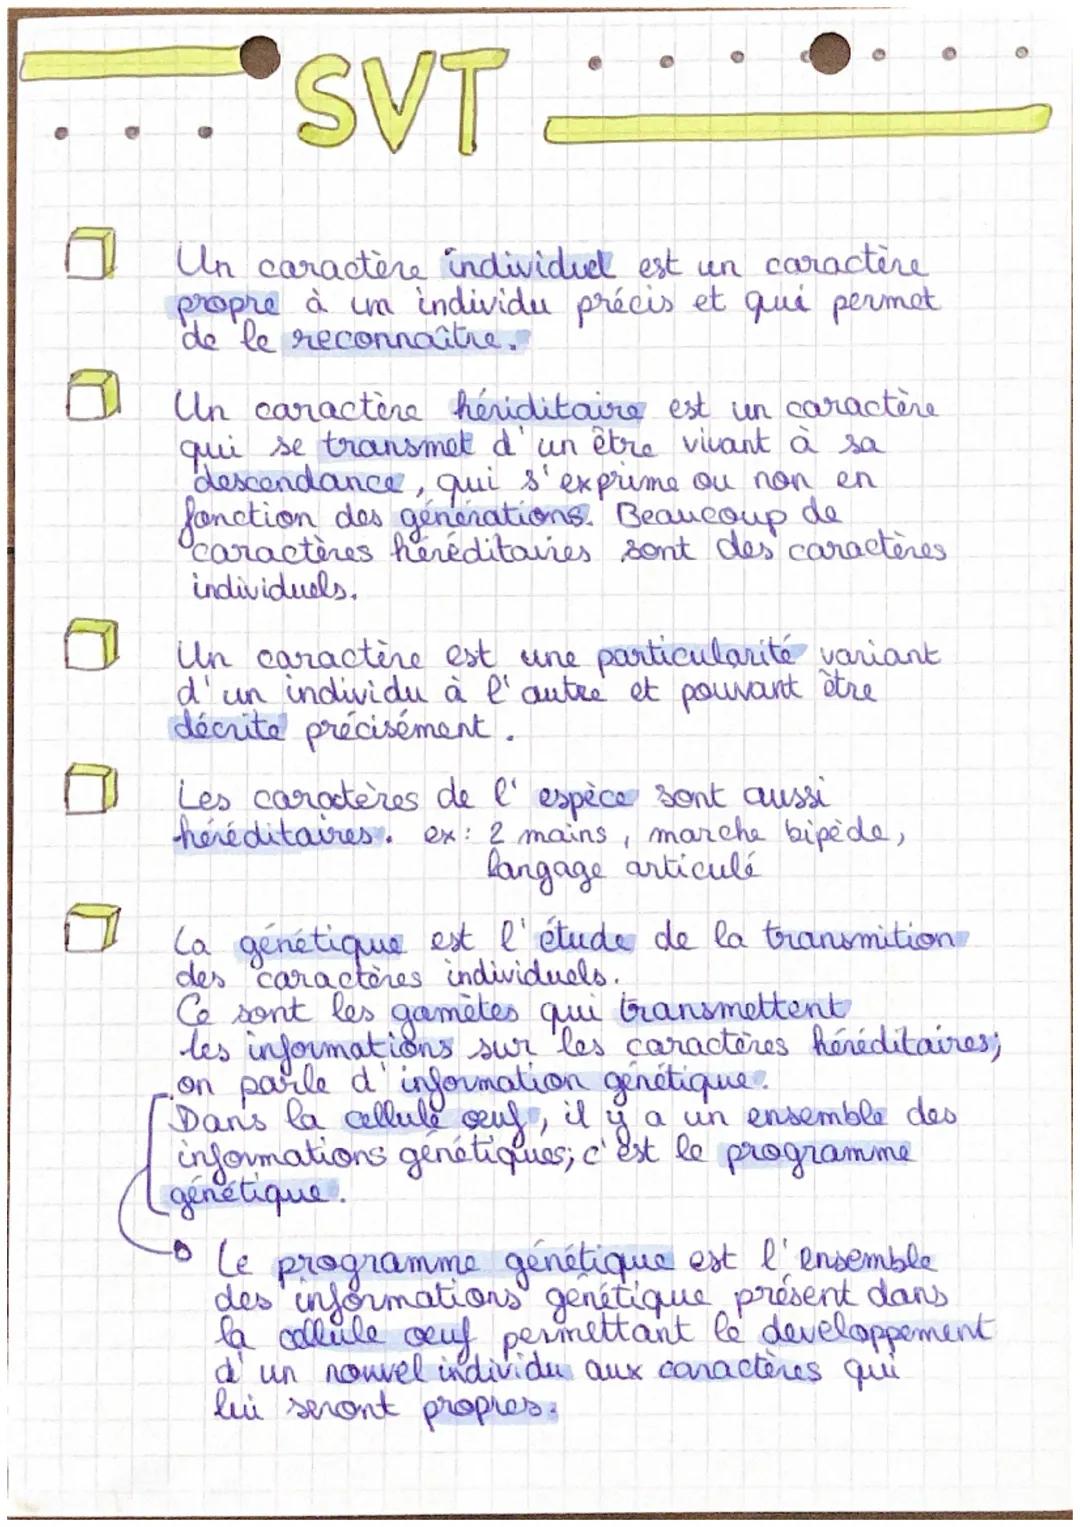 SVT
Un caractère individuel est un caractère
propre à un individu précis et qui permet
de le reconnaître.
Un caractère hériditaire est un caractère
qui se transmet d'un être vivant à sa
descendance, qui s'exprime ou non en
fonction des générations. Beaucoup de
caractères héréditaires sont des caractères
individuels.
Un caractère est une particularité variant
d'un individu à l'autre et pouvant être
décrite précisément.
Les caractères de l'espèce sont aussi
héréditaires. ex: 2 mains, marche bipède,
langage articulé
La génétique est l'étude de la transmition
des caractères individuels.
Ce sont les gamètes qui transmettent
les informations sur les caractères héréditaires;
on parle d'information génétique.
Dans la cellule œuf, il y a un ensemble des
informations génétiques; c'est le programme
génétique.
Le programme génétique est l'ensemble
des informations génétique présent dans
la cellule œuf permettant le developpement
d'un nouvel individu aux caractères qui
lui seront propres.